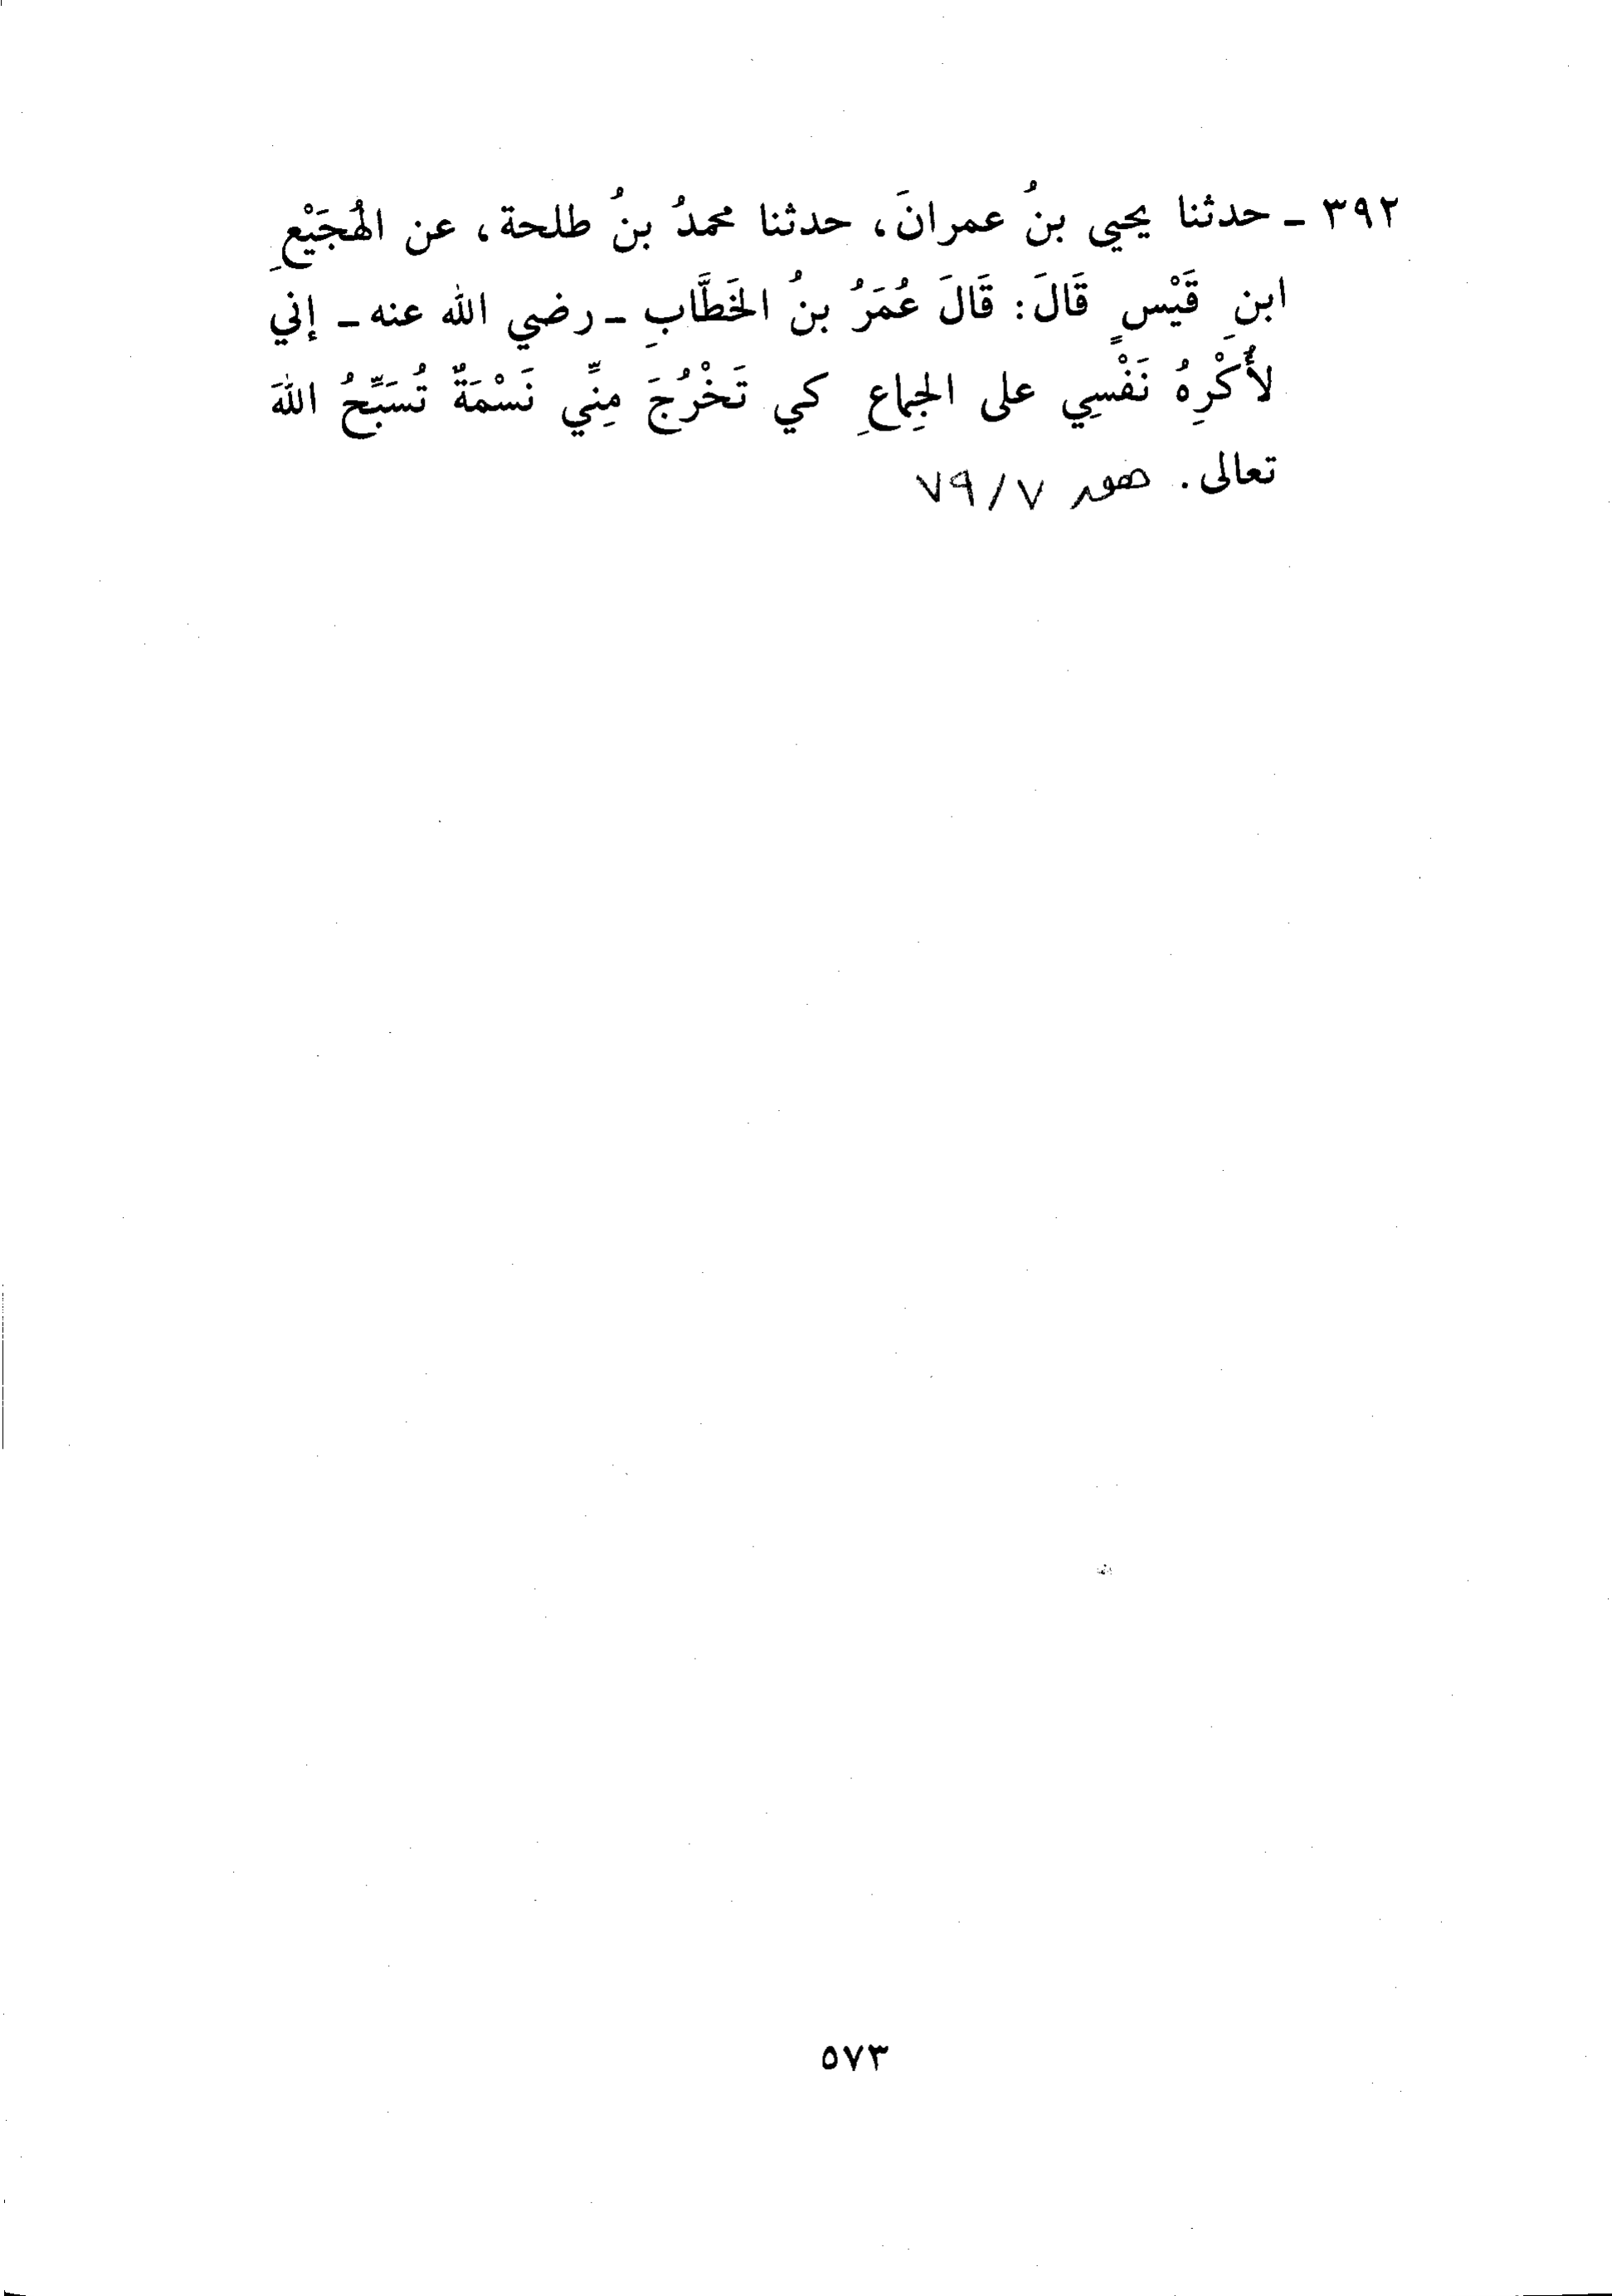 ٣٩٢ ـ حدثنا يحيى بنُ عمرانَ، حدثنا محمدُ بنُ طلحة، عن الهُجَيْعِ
ابنِ قَيْسٍ قَالَ: قَالَ عُمَرُ بنُ الخَطَّابِ ـ رضي الله عنه ـ إني
لأُكْرِهُ نَفْسِي على الجِماعِ كي تَخْرُجَ مِنِّي نَسْمَةٌ تُسَبِّحُ اللهَ
تعالى. هور ٧٩/٧
٥٧٣